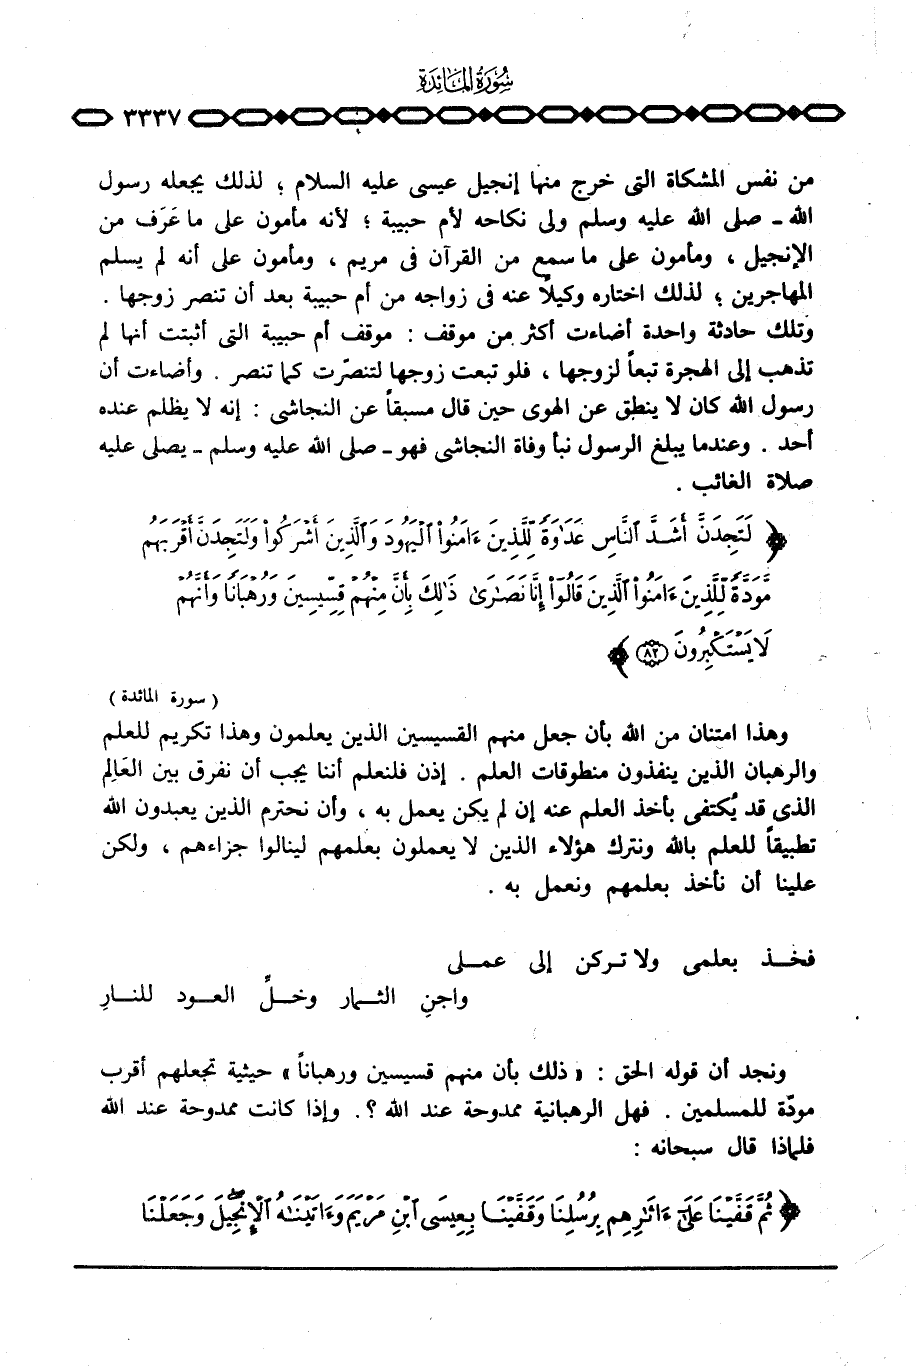 سُورَةُ المَائدَة
٣٣٣٧
من نفس المشكاة التى خرج منها إنجيل عيسى عليه السلام ؛ لذلك يجعله رسول
الله ـ صلى الله عليه وسلم ولى نكاحه لأم حبيبة ؛ لأنه مأمون على ما عَرَف من
الإنجيل ، ومأمون على ما سمع من القرآن فى مريم ، ومأمون على أنه لم يسلم
المهاجرين ؛ لذلك اختاره وكيلاً عنه فى زواجه من أم حبيبة بعد أن تنصر زوجها .
وتلك حادثة واحدة أضاءت أكثر من موقف : موقف أم حبيبة التى أثبتت أنها لم
تذهب إلى الهجرة تبعاً لزوجها ، فلو تبعت زوجها لتنصرّت كما تنصر . وأضاءت أن
رسول الله كان لا ينطق عن الهوى حين قال مسبقاً عن النجاشى : إنه لا يظلم عنده
أحد . وعندما يبلغ الرسول نبأ وفاة النجاشى فهو ـ صلى الله عليه وسلم ـ يصلى عليه
صلاة الغائب .
﴿ لَتَجِدَنَّ أَشَدَّ ٱلنَّاسِ عَدَٰوَةً لِّلَّذِينَ ءَامَنُوا۟ ٱلْيَهُودَ وَٱلَّذِينَ أَشْرَكُوا۟ وَلَتَجِدَنَّ أَقْرَبَهُم
مَّوَدَّةً لِّلَّذِينَ ءَامَنُوا۟ ٱلَّذِينَ قَالُوٓا۟ إِنَّا نَصَٰرَىٰ ذَٰلِكَ بِأَنَّ مِنْهُمْ قِسِّيسِينَ وَرُهْبَانًا وَأَنَّهُمْ
لَا يَسْتَكْبِرُونَ ٨٢ ﴾
( سورة المائدة )
وهذا امتنان من الله بأن جعل منهم القسيسين الذين يعلمون وهذا تكريم للعلم
والرهبان الذين ينفذون منطوقات العلم . إذن فلنعلم أننا يجب أن نفرق بين العَالِم
الذى قد يُكتفى بأخذ العلم عنه إن لم يكن يعمل به ، وأن نحترم الذين يعبدون الله
تطبيقاً للعلم بالله ونترك هؤلاء الذين لا يعملون بعلمهم لينالوا جزاءهم ، ولكن
علينا أن نأخذ بعلمهم ونعمل به .
فخـــذ بعلمى ولا تركن إلى عمـــلى
واجنِ الثـــمار وخـــلِّ العـــود للنـــارِ
ونجد أن قوله الحق : « ذلك بأن منهم قسيسين ورهباناً » حيثية تجعلهم أقرب
مودّة للمسلمين . فهل الرهبانية ممدوحة عند الله ؟. وإذا كانت ممدوحة عند الله
فلماذا قال سبحانه :
﴿ ثُمَّ قَفَّيْنَا عَلَىٰٓ ءَاثَٰرِهِم بِرُسُلِنَا وَقَفَّيْنَا بِعِيسَى ٱبْنِ مَرْيَمَ وَءَاتَيْنَٰهُ ٱلْإِنجِيلَ وَجَعَلْنَا